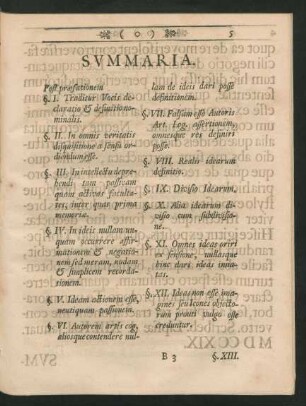 ( o ) 5
SVMMARIA.
Post præfationem
§. I. Traditur Vocis de-
claratio & definitio no-
minalis.
§. II. In omnis veritatis
disquisitione a sensu or-
diendum esse.
§. III. In intellectu depre-
hendi tam passivas
quam activas faculta-
tes, inter quas prima
memoria.
§. IV. In ideis nullam un-
quam occurrere affir-
mationem & negatio-
nem sed meram, nudam
& simplicem recorda-
tionem.
§. V. Ideam actionem esse,
neutiquam passionem.
§. VI. Autorem artis cog.
aliosque contendere nul-
lam de ideis dari posse
definitionem.
§. VII. Falsam esse Autoris
Art. Log. assertionem,
omnesque res definiri
posse.
§. VIII. Realis idearum
definitio.
§. IX. Divisio Idearum.
§. X. Alia idearum di-
visio cum subdivisio-
ne.
§. XI. Omnes ideas oriri
ex sensione, nullasque
hinc dari ideas inna-
tas.
§. XII. Ideas non esse ima-
gines seu icones objecto-
rum prouti vulgo esse
creduntur.
B 3 §. XIII.